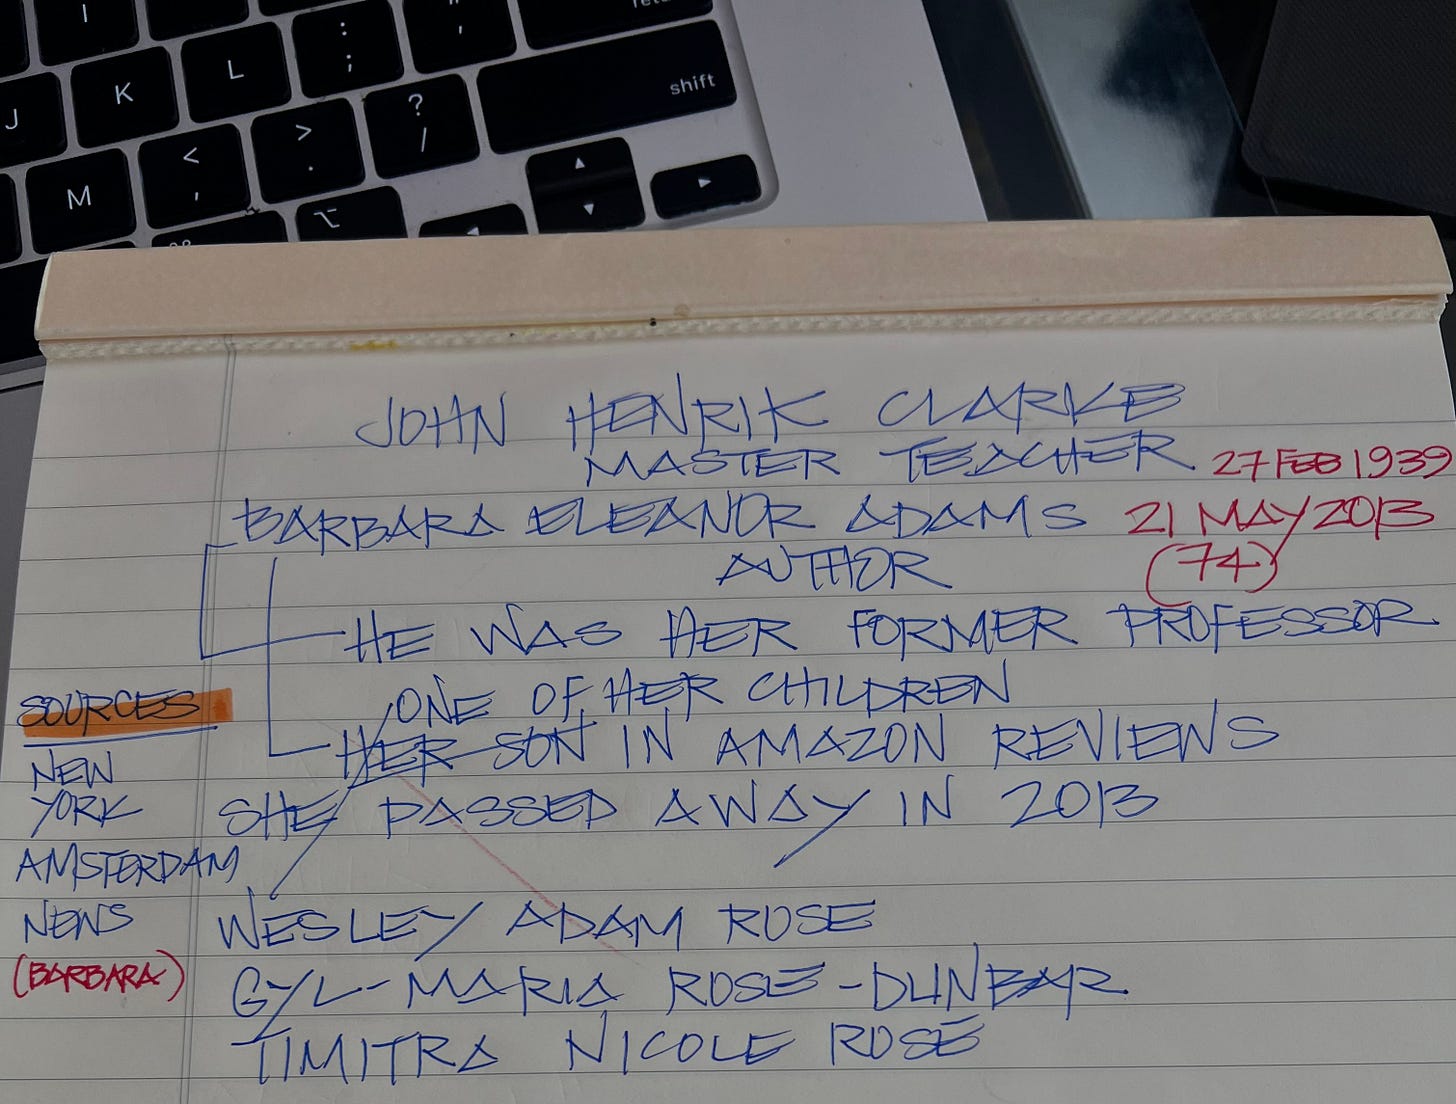 I
return
" '
: ;
L
K
J
shift
? /
> .
< ,
M
JOHN HENRIK CLARKE
MASTER TEACHER 27 FEB 1939
BARBARA ELEANOR ADAMS 21 MAY 2013
AUTHOR (74)
HE WAS HER FORMER PROFESSOR
ONE OF HER CHILDREN
HER SON IN AMAZON REVIEWS
SHE PASSED AWAY IN 2013
SOURCES
NEW
YORK
AMSTERDAM
NEWS
(BARBARA)
WESLEY ADAM ROSE
GYL-MARIA ROSE-DUNBAR
TIMITRA NICOLE ROSE